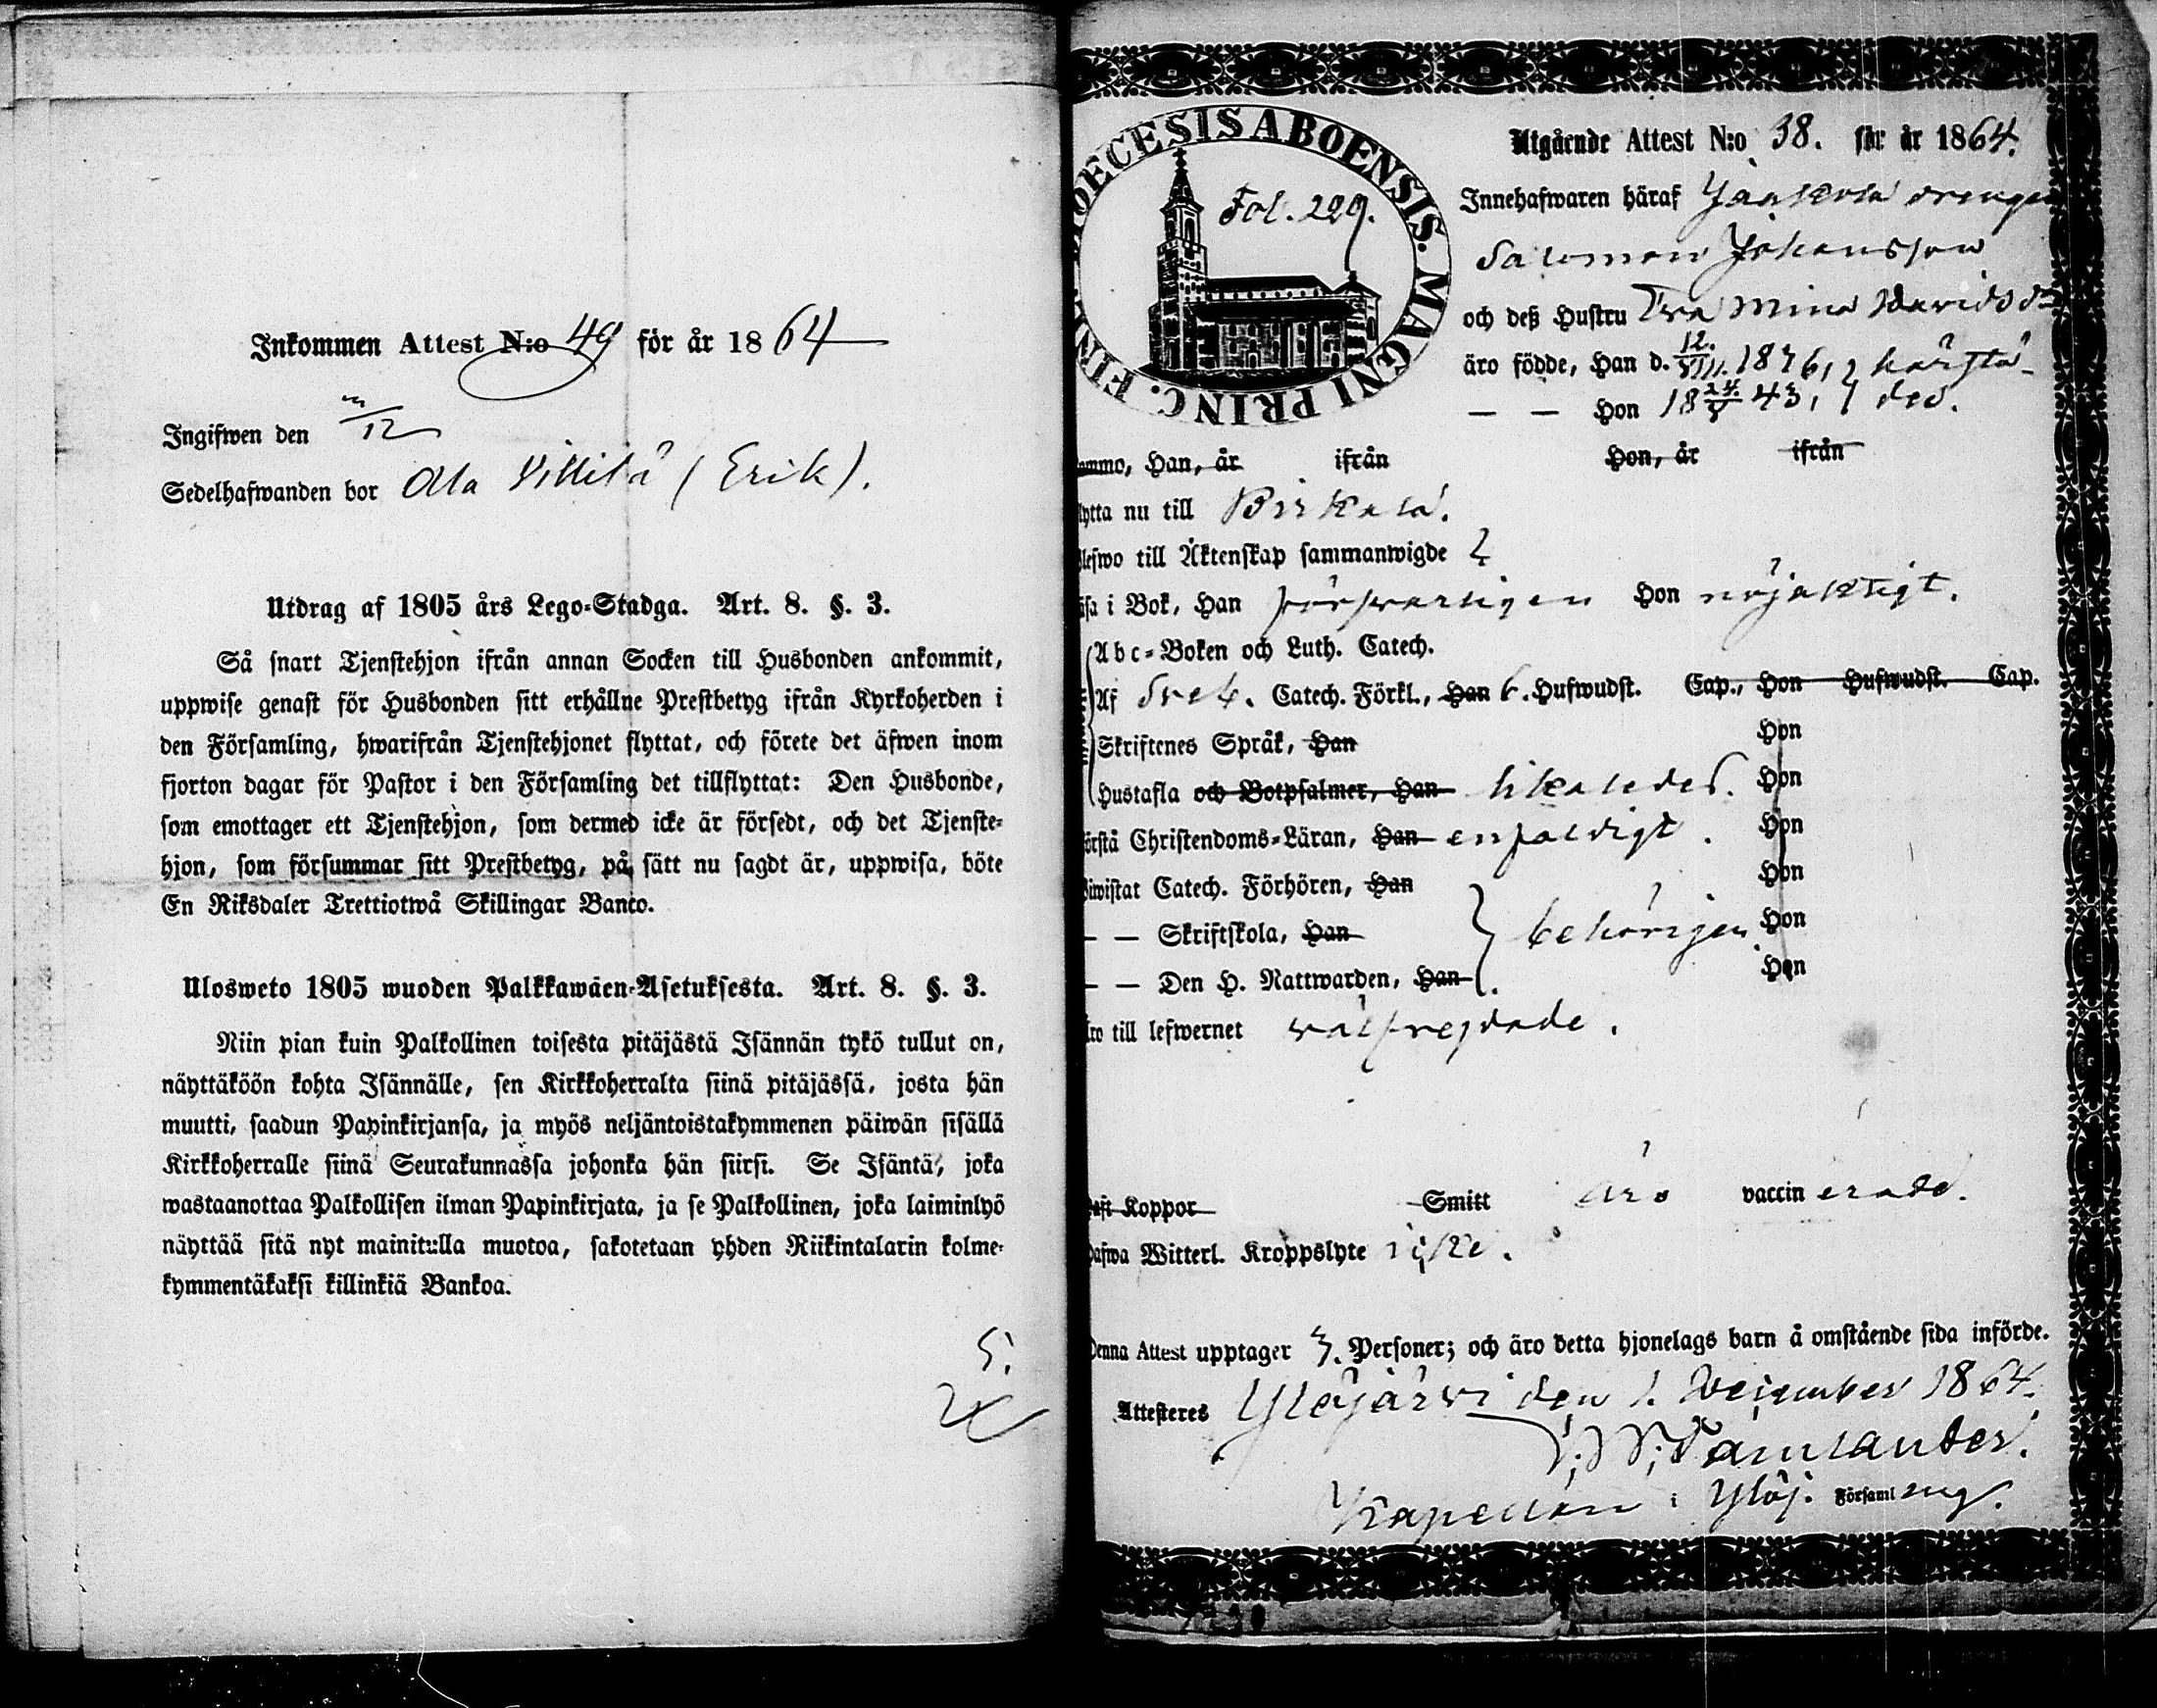 Inkommen Attest N:o 49 för år 1864
Ingifwen den /12
Sedelhafwanden bor Ala Killilä (Erik).
Utdrag af 1805 års Lego-Stadga. Art. 8. §. 3.
Så snart Tjenstehjon ifrån annan Socken till Husbonden ankommit,
uppwise genast för Husbonden sitt erhållne Prestbetyg ifrån Kyrkoherden i
den Församling, hwarifrån Tjenstehjonet flyttat, och förete det äfwen inom
fjorton dagar för Pastor i den Församling det tillflyttat: Den Husbonde,
som emottager ett Tjenstehjon, som dermed icke är försedt, och det Tjenste-
hjon, som försummar sitt Prestbetyg, på sätt nu sagdt är, uppwisa, böte
En Riksdaler Trettiotwå Skillingar Banco.
Ulosweto 1805 wuoden Palkkawäen-Asetuksesta. Art. 8. §. 3.
Niin pian kuin Palkollinen toisesta pitäjästä Isännän tykö tullut on,
näyttäköön kohta Isännälle, sen Kirkkoherralta siinä pitäjässä, josta hän
muutti, saadun Papinkirjansa, ja myös neljäntoistakymmenen päiwän sisällä
Kirkkoherralle siinä Seurakunnassa johonka hän siirsi. Se Isäntä, joka
wastaanottaa Palkollisen ilman Papinkirjata, ja se Palkollinen, joka laiminlyö
näyttää sitä nyt mainitulla muotoa, sakotetaan yhden Riikintalarin kolme-
kymmentäkaksi killinkiä Bankoa.
5.
DIOECESIS ABOENSIS. MAGNI PRINC. FINL.
Fol. 229.
Utgående Attest N:o 38. för år 1864.
Innehafwaren häraf Jaakola drengen
Salomon Johansson
och deß Hustru Eva Mina Davidsdr
äro födde, Han d. 12./VIII. 1836, härstä-
— — Hon 18 24./V 43, des.
ammo, Han, år ifrån Hon, år ifrån
lytta nu till Birkala.
blefwo till Äktenskap sammanwigde
äsa i Bok, Han försvarligen Hon nöjaktigt.
Abc-Boken och Luth. Catech.
Af Sveb. Catech. Förkl., Han 6. Hufwudst. Cap., Hon Hufwudst. Cap.
Skriftenes Språk, Han Hon
Hustafla och Botpsalmer, Han likaledes. Hon
örstå Christendoms-Läran, Han enfaldigt. Hon
biwistat Catech. Förhören, Han Hon
— — Skriftskola, Han behörigen. Hon
— — Den H. Nattwarden, Han Hon
Äro till lefwernet välfrejdade.
haft Koppor Smitt äro vaccinerade.
hafwa Witterl. Kroppslyte icke.
Denna Attest upptager 3. Personer; och äro detta hjonelags barn å omstående sida införde.
Attesteres Ylöjärvi den 1. December 1864.
Kapellan i Ylöj. Församling.